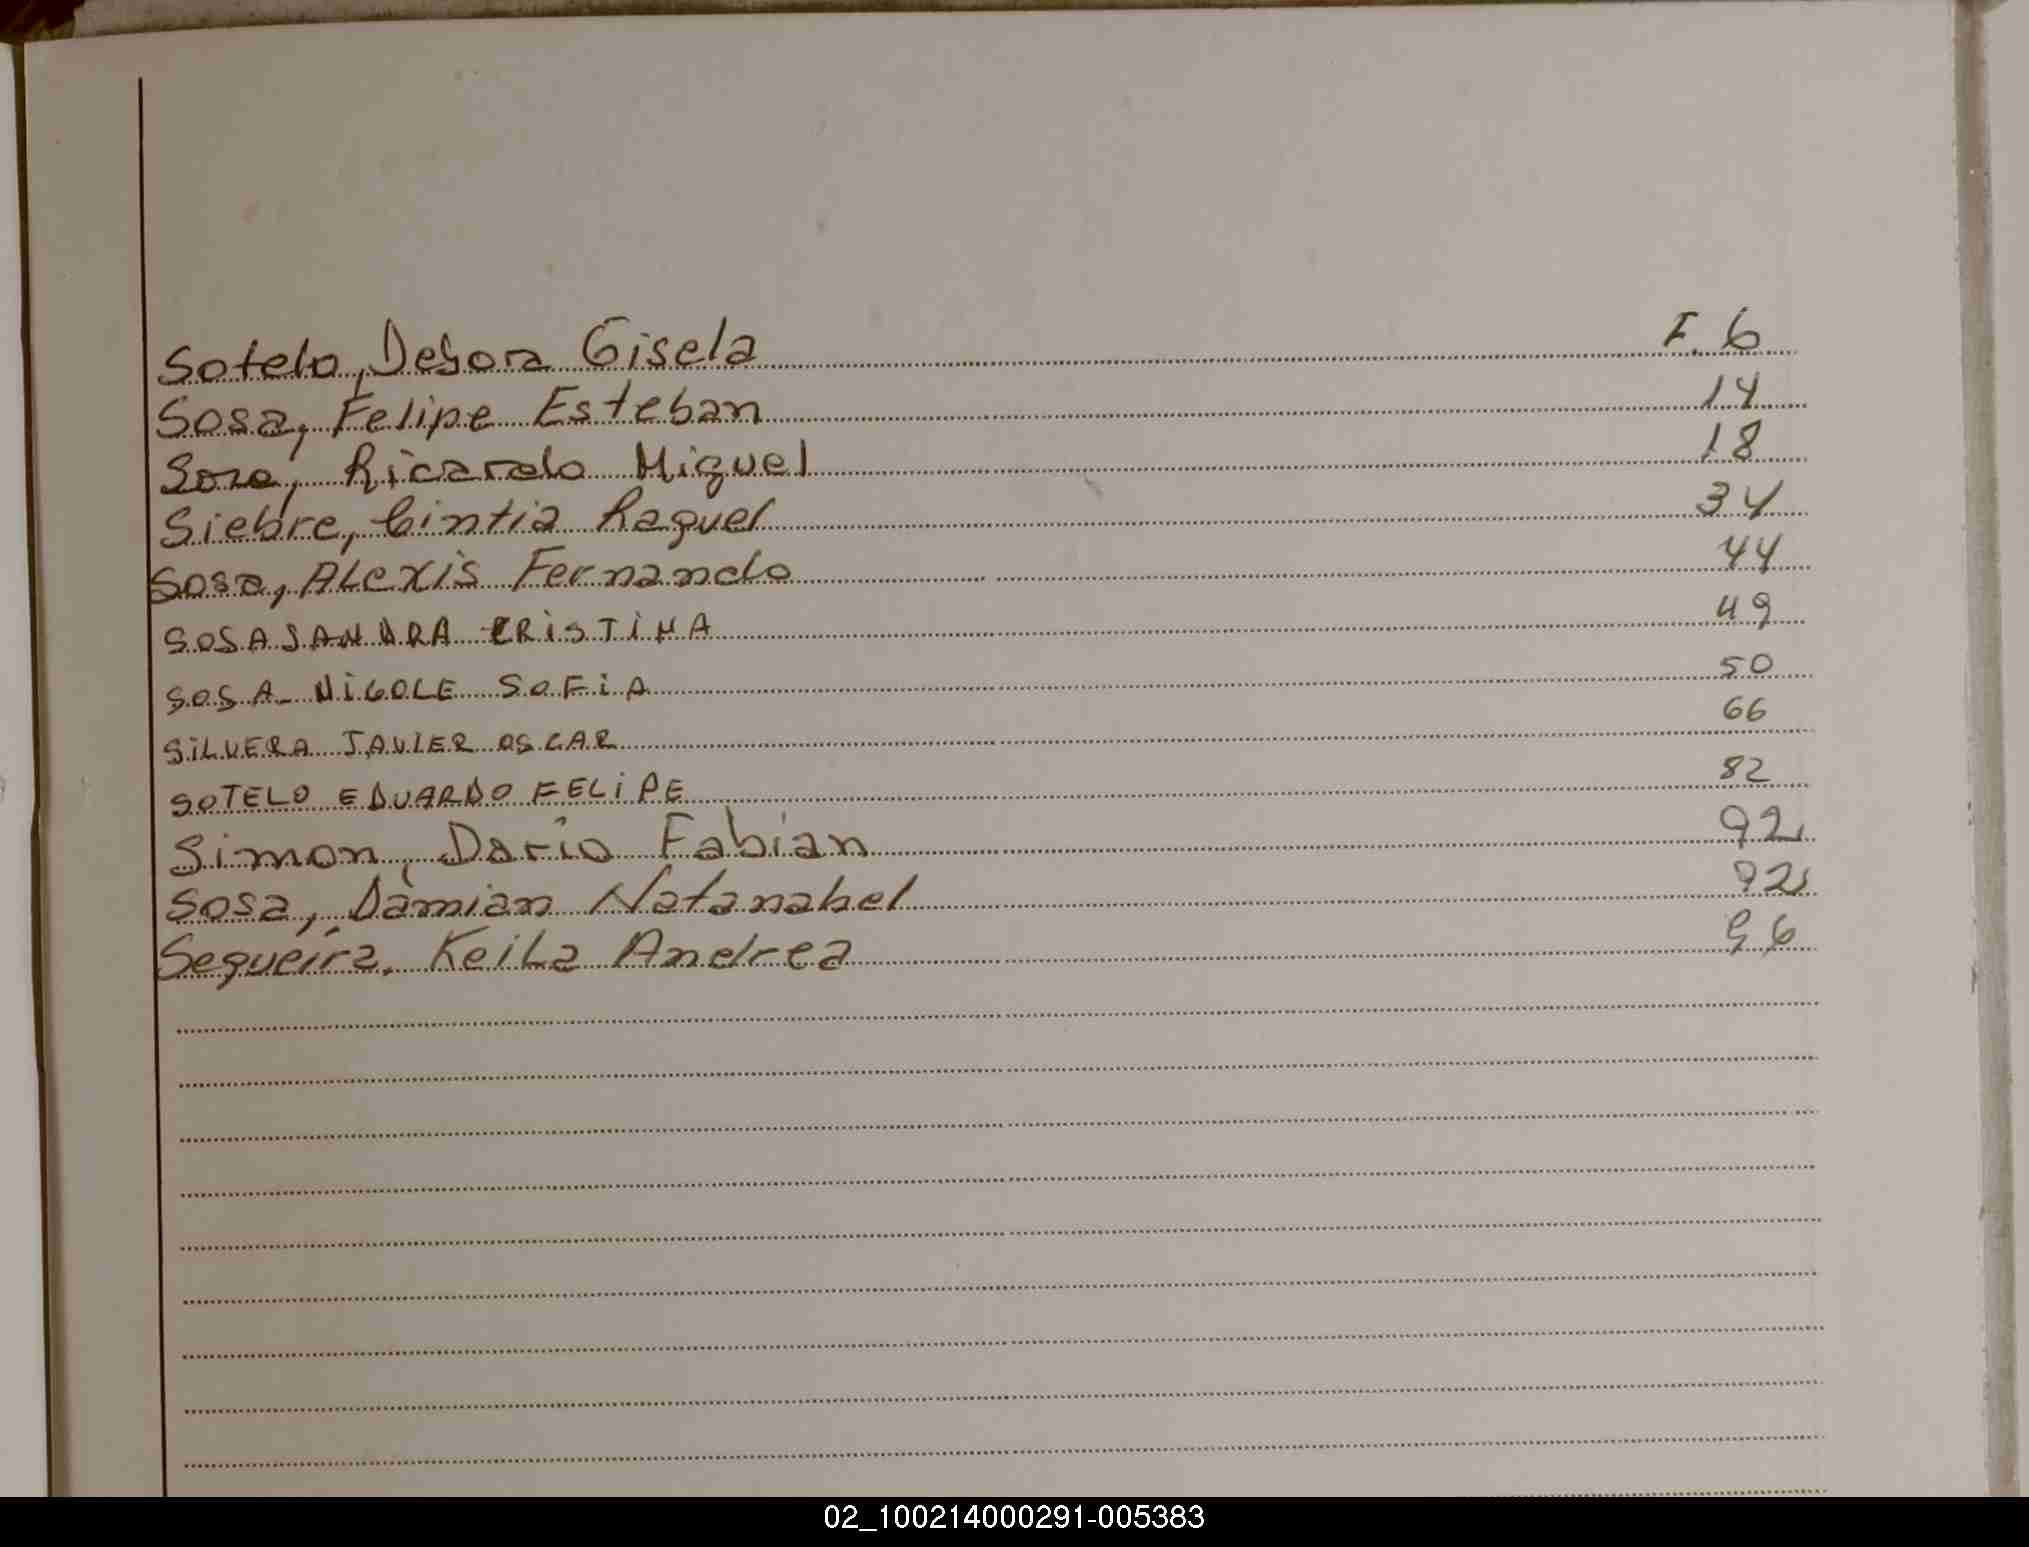 Sotelo, Debora Gisela F. 6
Sosa, Felipe Esteban 14
Soze, Ricardo Miguel 18
Siebre, Cintia Raquel 34
Sosa, ALexis Fernando 44
SOSA SANDRA CRISTINA 49
SOSA NICOLE SOFIA 50
SILVERA JAVIER OSCAR 66
SOTELO EDUARDO FELIPE 82
Simon, Darío Fabian 92
Sosa, Damian Natanahel 92
Sequeira, KeiLa Andrea 96
02_100214000291-005383